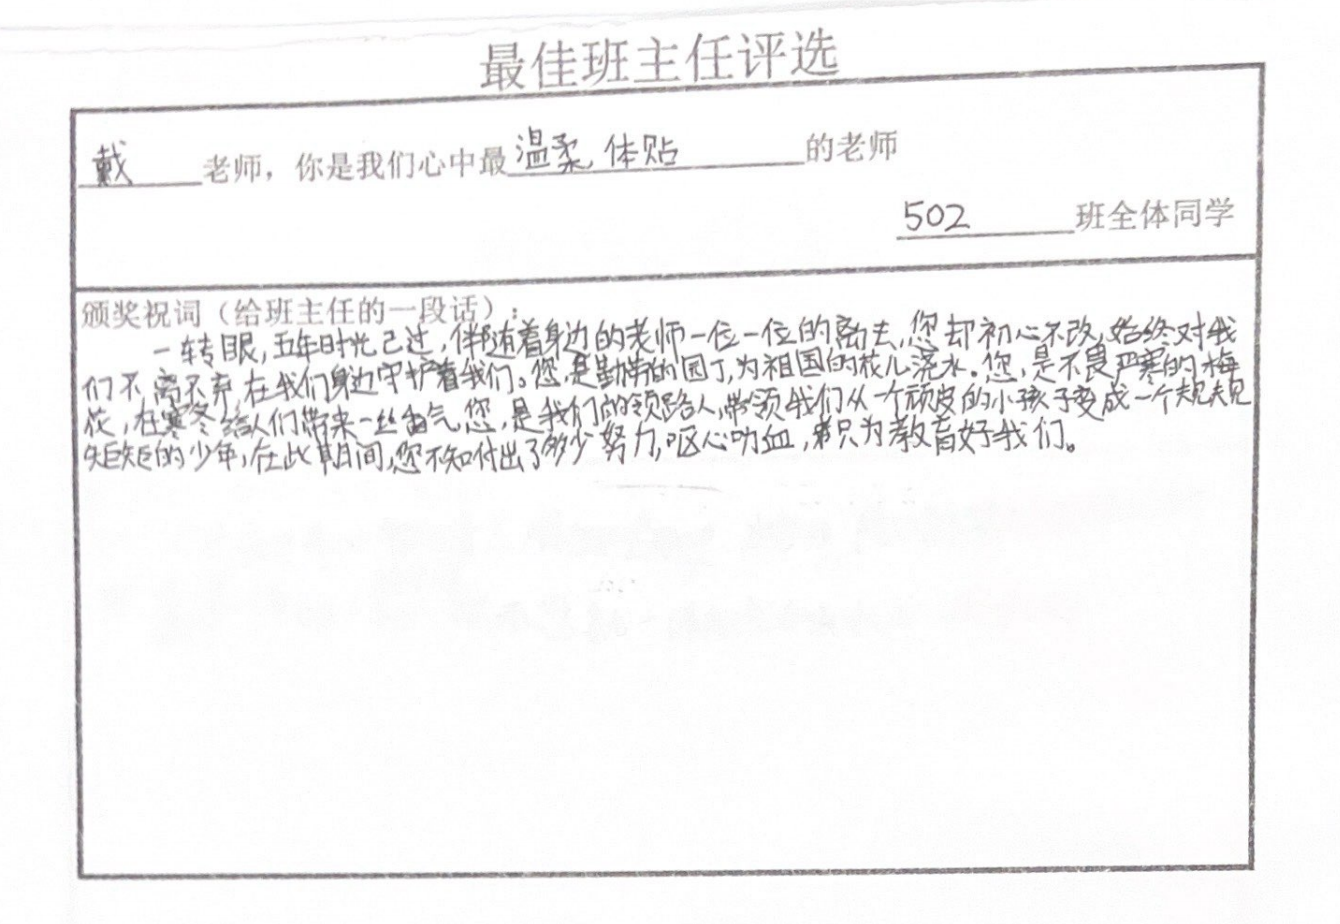 最佳班主任评选
戴 老师，你是我们心中最温柔 体贴 的老师
502 班全体同学
颁奖祝词（给班主任的一段话）：
一转眼，五年时光已过，伴随着身边的老师一位一位的离去，您却初心不改，始终对我
们不离不弃，在我们身边守护着我们。您，是勤劳的园丁，为祖国的花儿浇水。您，是不畏严寒的梅
花，在寒冬给人们带来一丝香气，您，是我们的领路人，带领我们从一个顽皮的小孩子变成一个规规
矩矩的少年，在此期间，您不知付出了多少努力，呕心叻血，只为教育好我们。